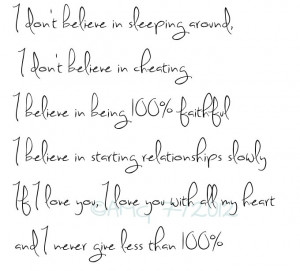 I don't believe in sleeping around,
I don't believe in cheating
I believe in being 100% faithful
I believe in starting relationships slowly
If I love you, I love you with all my heart
and I never give less than 100%